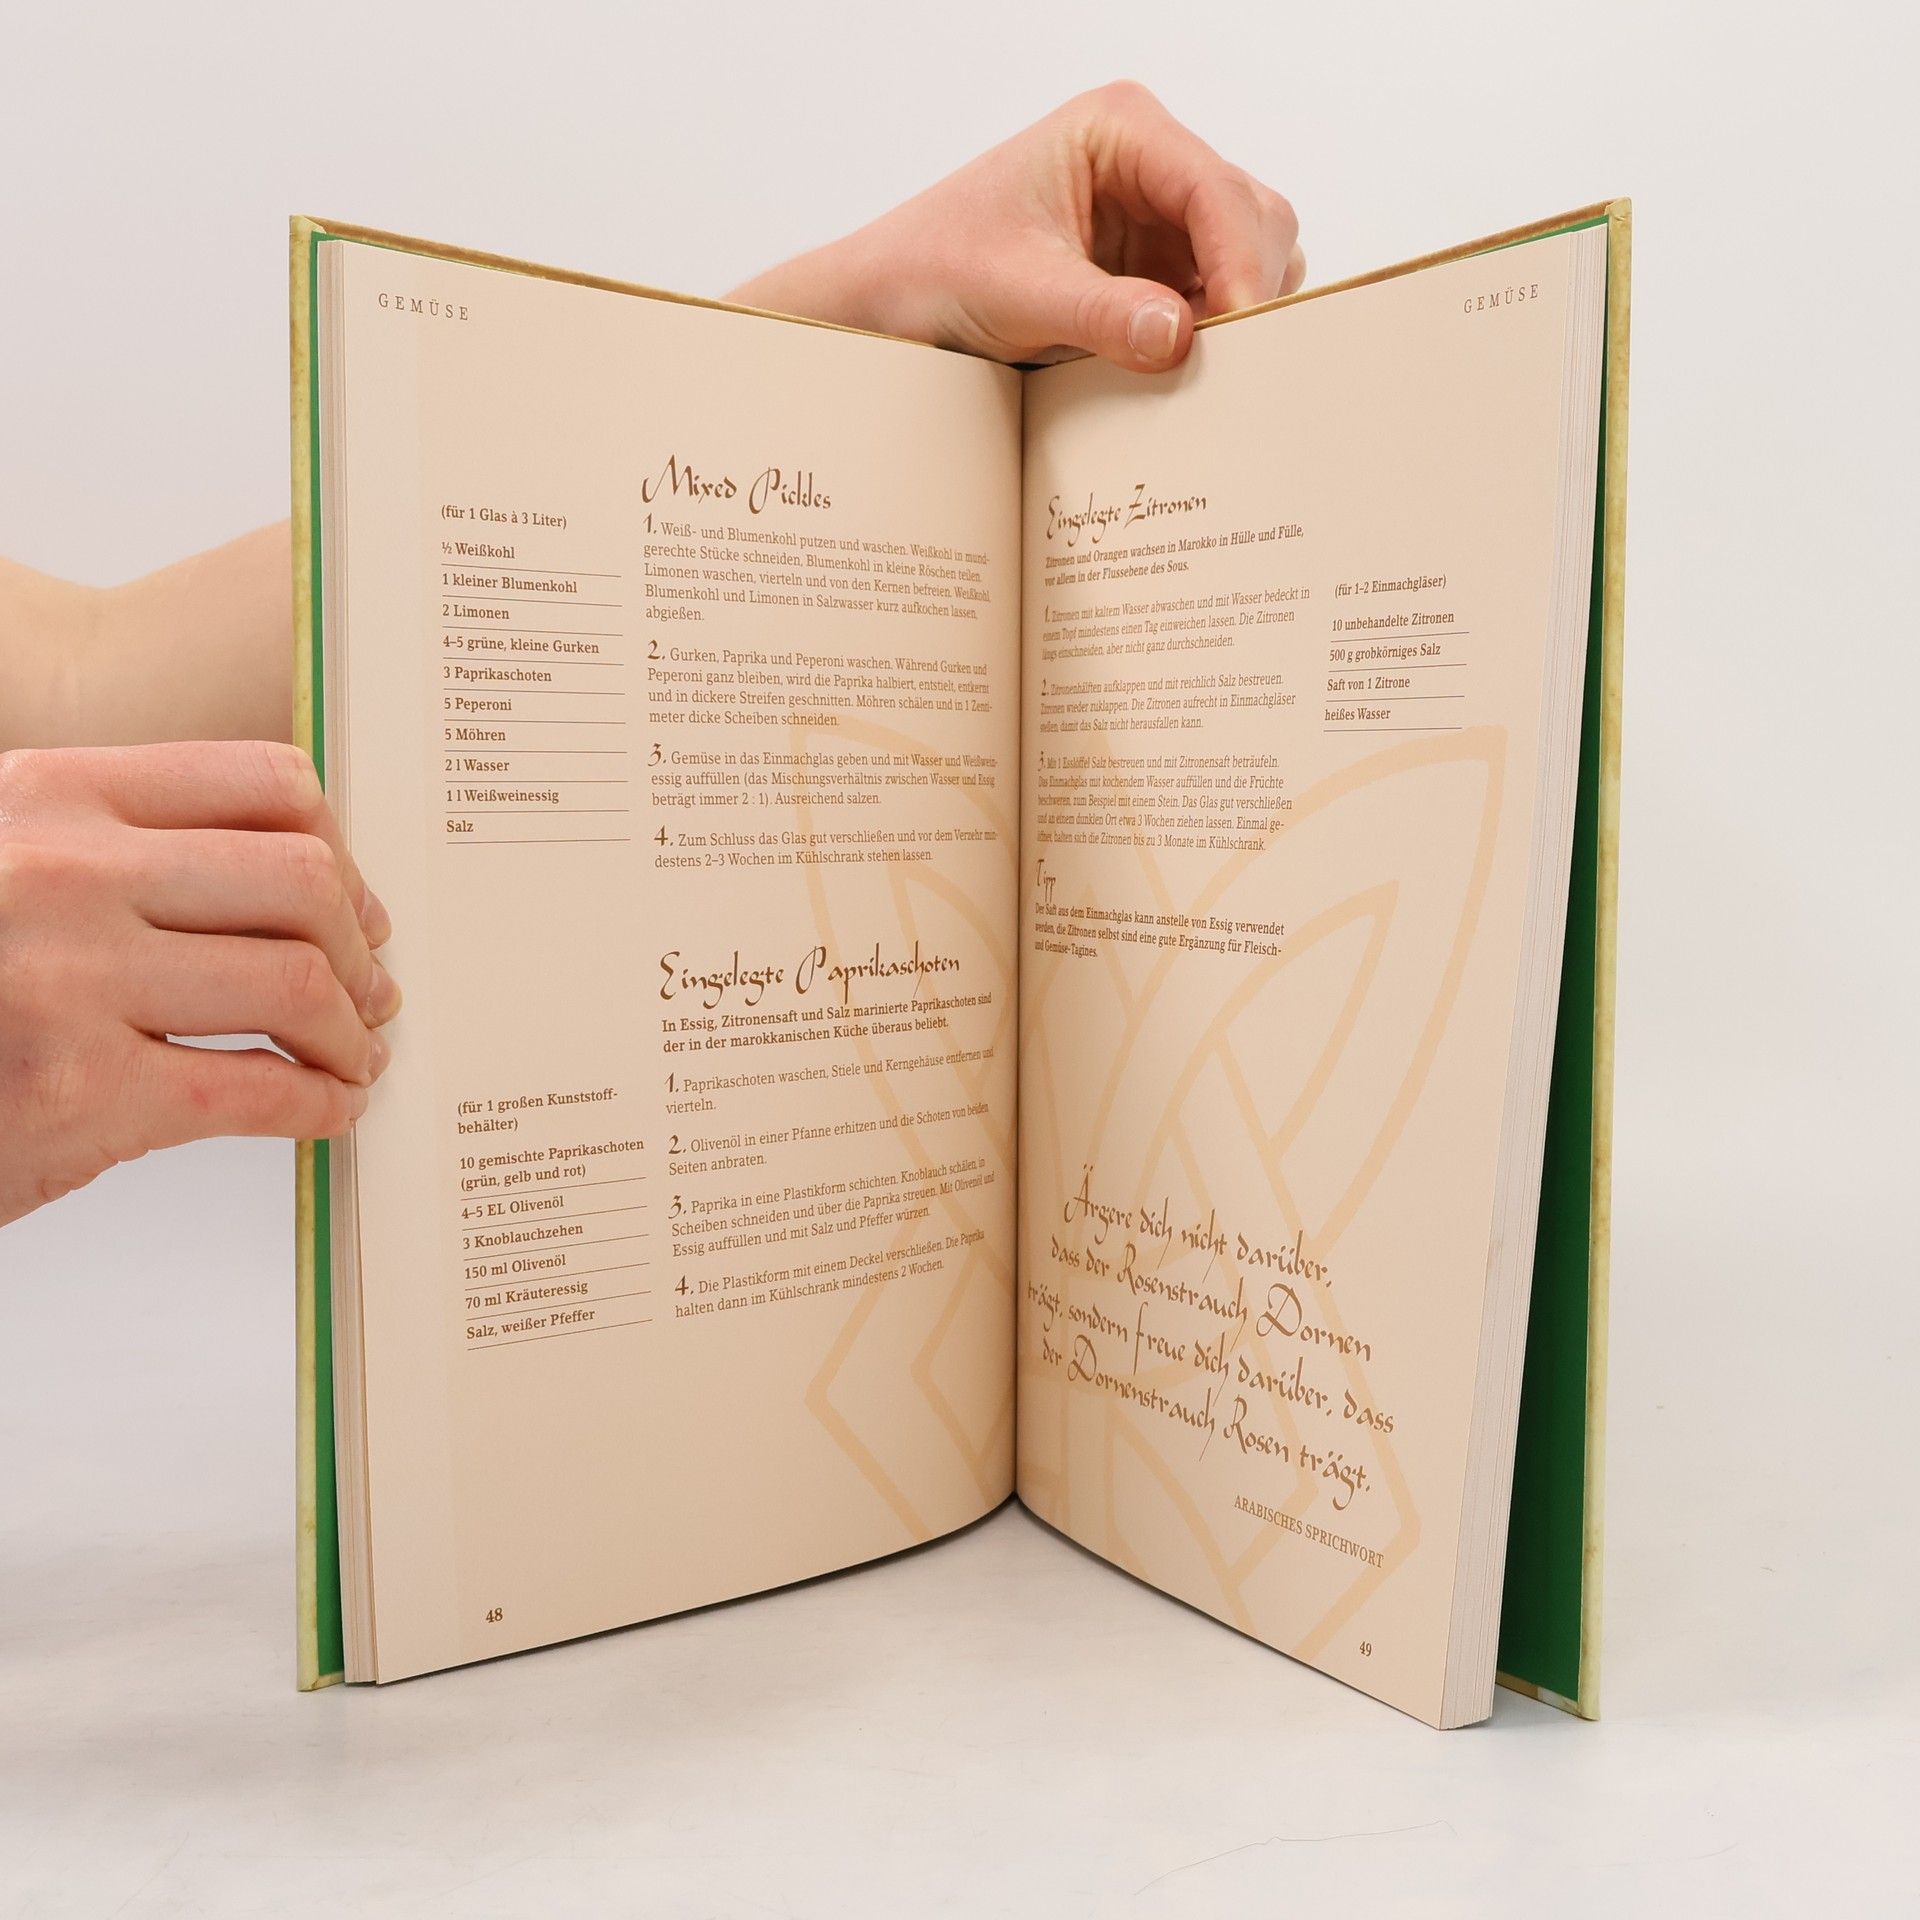 GEMÜSE
Mixed Pickles
(für 1 Glas à 3 Liter)
½ Weißkohl
1 kleiner Blumenkohl
2 Limonen
4–5 grüne, kleine Gurken
3 Paprikaschoten
5 Peperoni
5 Möhren
2 l Wasser
1 l Weißweinessig
Salz
1. Weiß- und Blumenkohl putzen und waschen. Weißkohl in mund-
gerechte Stücke schneiden, Blumenkohl in kleine Röschen teilen.
Limonen waschen, vierteln und von den Kernen befreien. Weißkohl,
Blumenkohl und Limonen in Salzwasser kurz aufkochen lassen,
abgießen.
2. Gurken, Paprika und Peperoni waschen. Während Gurken und
Peperoni ganz bleiben, wird die Paprika halbiert, entstielt, entkernt
und in dickere Streifen geschnitten. Möhren schälen und in 1 Zenti-
meter dicke Scheiben schneiden.
3. Gemüse in das Einmachglas geben und mit Wasser und Weißwein-
essig auffüllen (das Mischungsverhältnis zwischen Wasser und Essig
beträgt immer 2 : 1). Ausreichend salzen.
4. Zum Schluss das Glas gut verschließen und vor dem Verzehr min-
destens 2–3 Wochen im Kühlschrank stehen lassen.
Eingelegte Paprikaschoten
In Essig, Zitronensaft und Salz marinierte Paprikaschoten sind
der in der marokkanischen Küche überaus beliebt.
(für 1 großen Kunststoff-
behälter)
10 gemischte Paprikaschoten
(grün, gelb und rot)
4–5 EL Olivenöl
3 Knoblauchzehen
150 ml Olivenöl
70 ml Kräuteressig
Salz, weißer Pfeffer
1. Paprikaschoten waschen, Stiele und Kerngehäuse entfernen und
vierteln.
2. Olivenöl in einer Pfanne erhitzen und die Schoten von beiden
Seiten anbraten.
3. Paprika in eine Plastikform schichten. Knoblauch schälen, in
Scheiben schneiden und über die Paprika streuen. Mit Olivenöl und
Essig auffüllen und mit Salz und Pfeffer würzen.
4. Die Plastikform mit einem Deckel verschließen. Die Paprika
halten dann im Kühlschrank mindestens 2 Wochen.
48
GEMÜSE
Eingelegte Zitronen
Zitronen und Orangen wachsen in Marokko in Hülle und Fülle,
vor allem in der Flussebene des Sous.
1. Zitronen mit kaltem Wasser abwaschen und mit Wasser bedeckt in
einem Topf mindestens einen Tag einweichen lassen. Die Zitronen
längs einschneiden, aber nicht ganz durchschneiden.
2. Zitronenhälften aufklappen und mit reichlich Salz bestreuen.
Zitronen wieder zuklappen. Die Zitronen aufrecht in Einmachgläser
stellen, damit das Salz nicht herausfallen kann.
3. Mit 1 Esslöffel Salz bestreuen und mit Zitronensaft beträufeln.
Das Einmachglas mit kochendem Wasser auffüllen und die Früchte
beschweren, zum Beispiel mit einem Stein. Das Glas gut verschließen
und an einem dunklen Ort etwa 3 Wochen ziehen lassen. Einmal ge-
öffnet, halten sich die Zitronen bis zu 3 Monate im Kühlschrank.
Tipp
Der Saft aus dem Einmachglas kann anstelle von Essig verwendet
werden, die Zitronen selbst sind eine gute Ergänzung für Fleisch-
und Gemüse-Tagines.
(für 1–2 Einmachgläser)
10 unbehandelte Zitronen
500 g grobkörniges Salz
Saft von 1 Zitrone
heißes Wasser
Ärgere dich nicht darüber,
dass der Rosenstrauch Dornen
trägt, sondern freue dich darüber, dass
der Dornenstrauch Rosen trägt.
ARABISCHES SPRICHWORT
49